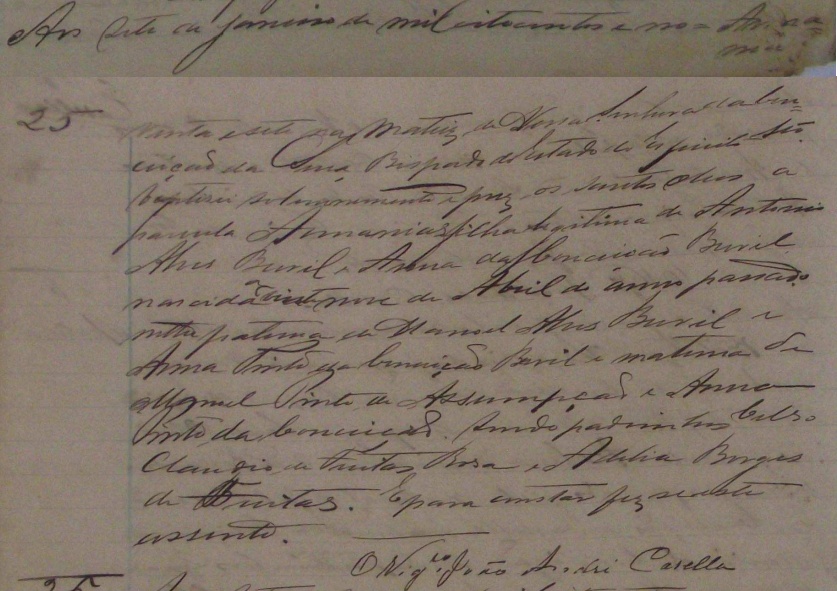 Aos sete de Janeiro de mil oitocentos e no=
25 venta e sete na Matriz de Nossa Senhora da Con=
ceiçaõ da Serra Bispado do Estado do Espirito Sto
baptizei solemnemente e puz os santos oleos a
parvula filha legitima de Antonio
Alves Buril e Anna da Conceicaõ Buril
nascida vinte nove de Abril do anno passado
netta paterna de Manoel Alves Buril e
Anna Pinto da Conceicaõ Buril e materna de
Manoel Pinto de Assumpçaõ e Anna
Pinto da Conceicaõ. Sendo padrinhos Celso
Claudio de Freitas Rosa e Adelia Borges
de Freitas. E para constar fez se este
assento.
O Vigro João André Casella